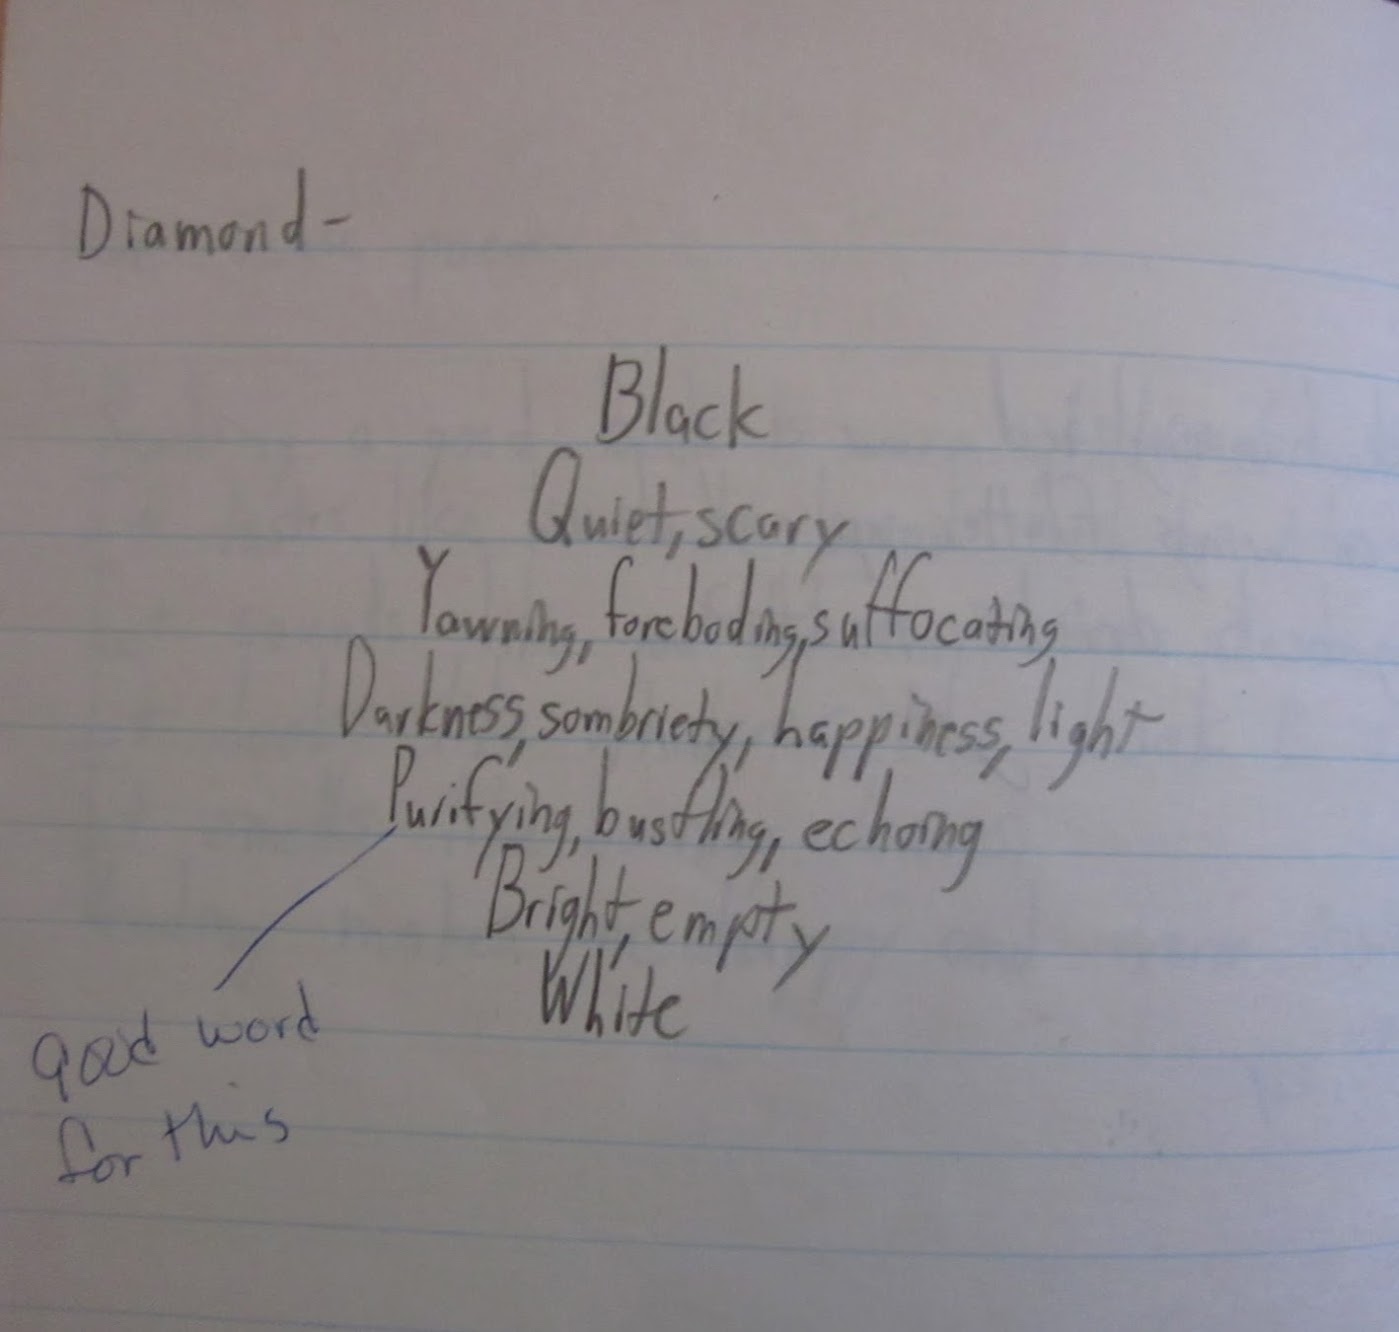 Diamond-
Black
Quiet, scary
Yawning, foreboding, suffocating
Darkness, sombriety, happiness, light
Purifying, bustling, echoing
Bright, empty
White
good word
for this